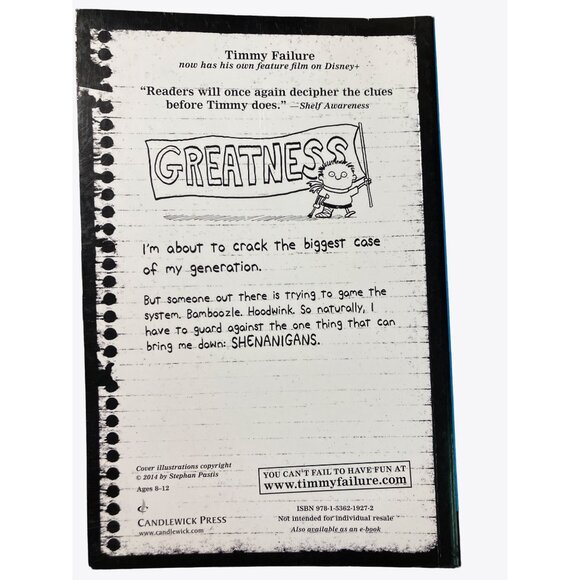 Timmy Failure
now has his own feature film on Disney+
“Readers will once again decipher the clues
before Timmy does.” —Shelf Awareness
GREATNESS
I'm about to crack the biggest case
of my generation.
But someone out there is trying to game the
system. Bamboozle. Hoodwink. So naturally, I
have to guard against the one thing that can
bring me down: SHENANIGANS.
Cover illustrations copyright
© 2014 by Stephan Pastis
Ages 8–12
CANDLEWICK PRESS
www.candlewick.com
YOU CAN'T FAIL TO HAVE FUN AT
www.timmyfailure.com
ISBN 978-1-5362-1927-2
Not intended for individual resale
Also available as an e-book